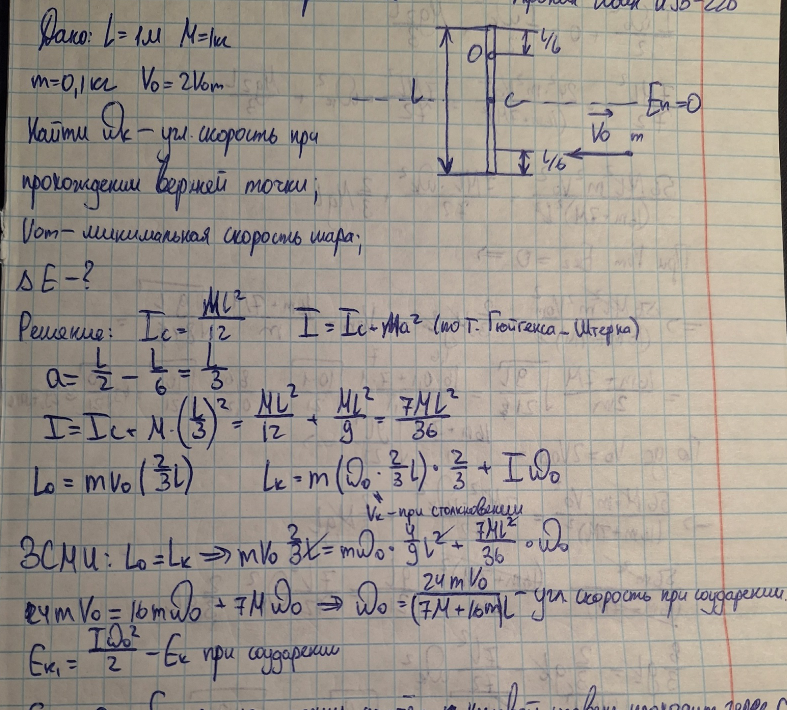 Дано: L=1м M=1кг
m=0,1кг V₀=2V₀m
Найти ω_к – угл. скорость при
прохождении верхней точки;
V₀m – минимальная скорость шара;
ΔE –?
L/6
O
L
C
Eп=0
V₀ m
L/6
Решение: Ic = ML²/12 I = Ic+Ma² (по т. Гюйгенса – Штерна)
a = L/2 – L/6 = L/3
I = Ic + M·(L/3)² = ML²/12 + ML²/9 = 7ML²/36
L₀ = mV₀(2/3 L) Lк = m(ω₀·2/3 L)·2/3 + Iω₀
Vк – при столкновении
ЗСМИ: L₀=Lк ⇒ mV₀ 2/3 L = mω₀·4/9 L² + 7ML²/36 · ω₀
24mV₀ = 16mω₀ + 7Mω₀ ⇒ ω₀ = 24mV₀/(7M+16m)L – угл. скорость при соударении.
Eк₁ = Iω₀²/2 – Eк при соударении